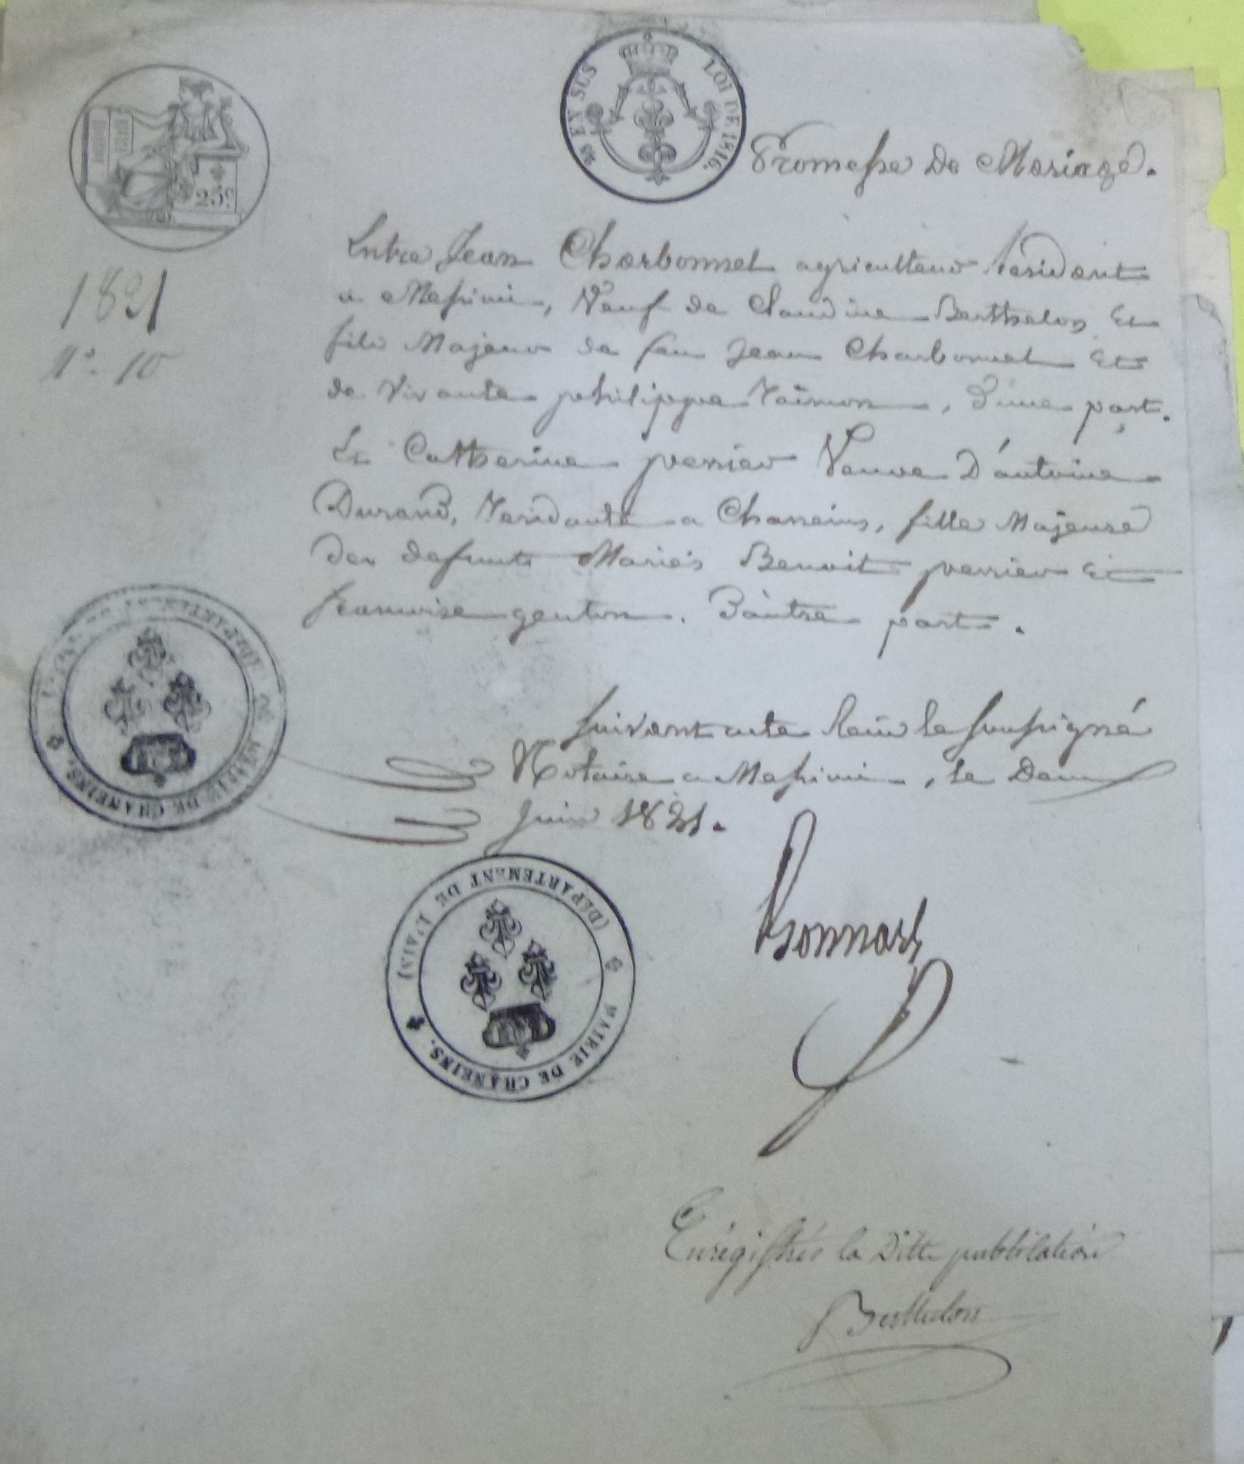 25c
EN SUS
LOI DE 1816.
Promesse De Mariage.
1821
N° 10
Entre Jean Charbonnet agriculteur résidant
a Messimi, Veuf de Claudine Berthelon, Et
fils Majeur de feu Jean Charbonnet Et
de Vivante philippe, d'une part.
Et Catherine perrier Veuve D'antoine
Durand, Residante a Chaneins, fille Majeure
des defunts Mariés Benoit perrier Et
francoise genton. D'autre part.
Suivant acte Recu le Soussigné
Notaire a Messimi, le Deux
Juin 1821.
MAIRIE DE CHANEINS.
(DEPARTEMENT DE L'AIN)
MAIRIE DE CHANEINS.
Bonnard
Enrégistrés la Ditte publication
Berthelon